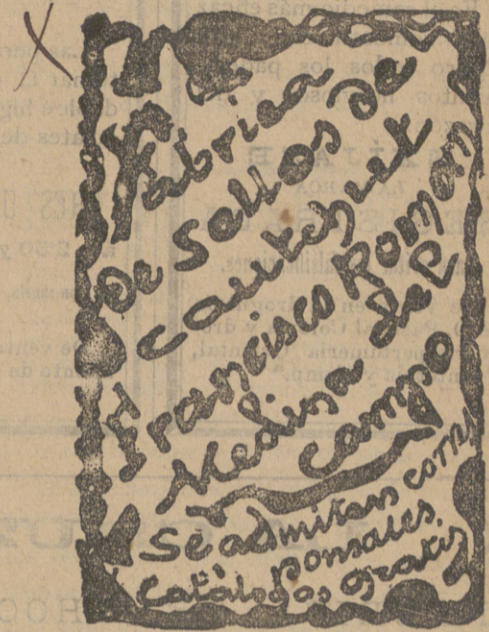 Fábrica
de Sellos de
cautchut
Francisco Román
Medina del
Campo
Se admiten corres
ponsales.
Catálogos gratis